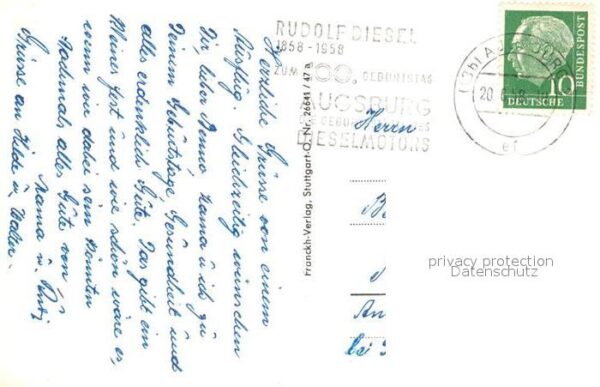 Herzliche Grüsse von einem
Ausflug. Gleichzeitig wünschen
Dir, lieber Benno, Mama u. ich zu
Deinem Geburtstage Gesundheit und
alles erdenklich Gute. Das gibt ein
Fest und wie schön wäre es,
wenn wir dabei sein könnten
Nochmals alles Gute von
Mama u.
Grüsse an Hede u. Walter.
Franckh-Verlag, Stuttgart-O, Nr. 26641/47 a
RUDOLF DIESEL
1858-1958
ZUM 100. GEBURTSTAG
AUGSBURG
DIESELMOTORS
20
DEUTSCHE
BUNDESPOST
10
Herrn
An
bei
privacy protection
Datenschutz